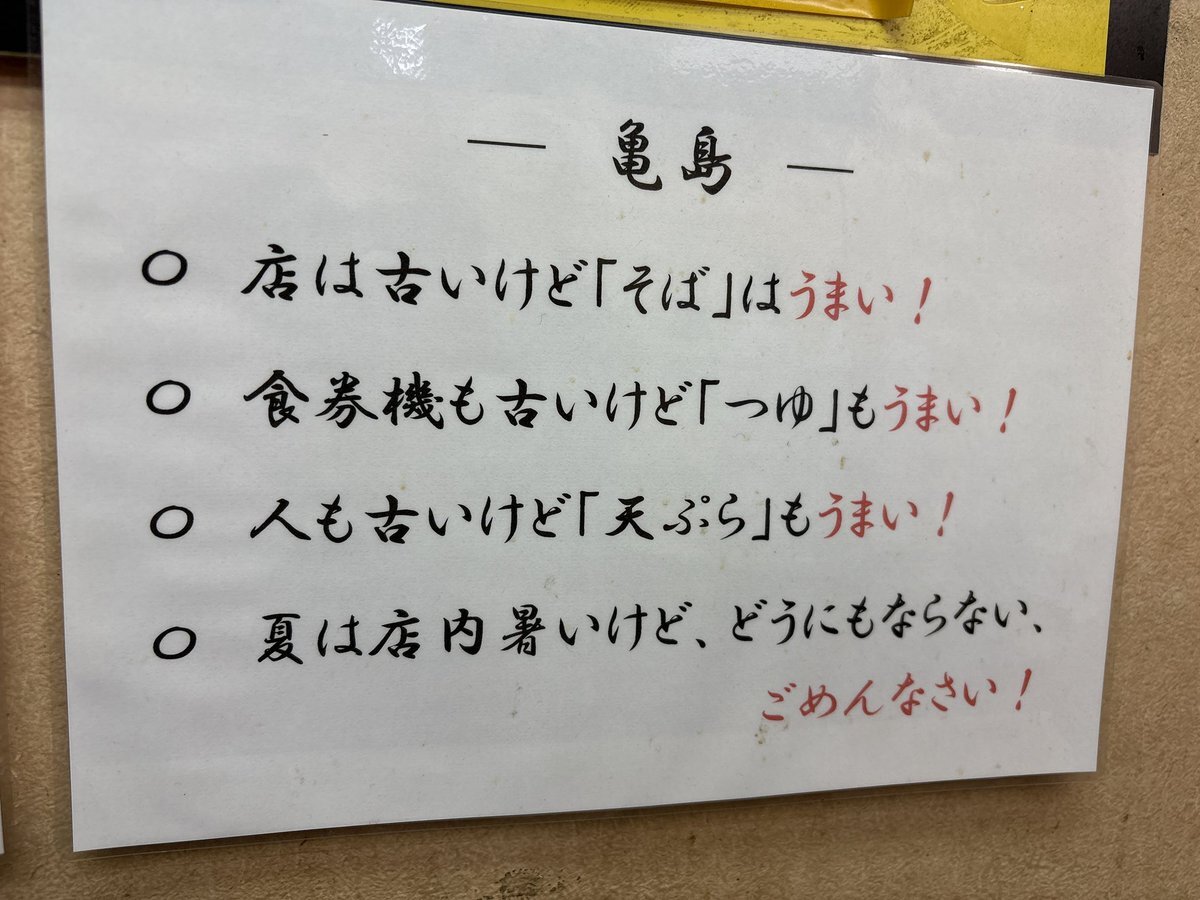 — 亀島 —
○ 店は古いけど「そば」はうまい！
○ 食券機も古いけど「つゆ」もうまい！
○ 人も古いけど「天ぷら」もうまい！
○ 夏は店内暑いけど、どうにもならない、
ごめんなさい！